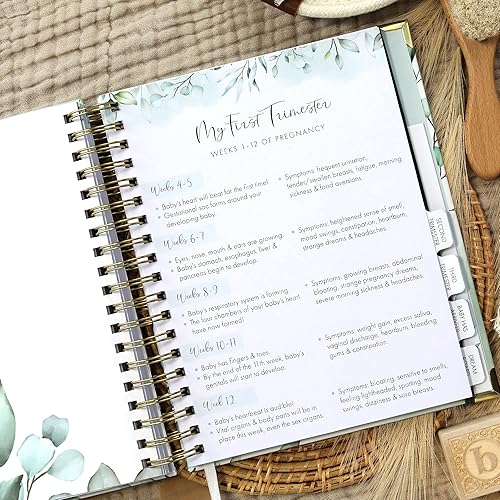 My First Trimester
WEEKS 1-12 OF PREGNANCY
Weeks 4-5
• Baby's heart will beat for the first time!
• Gestational sac forms around your
developing baby.
• Symptoms: frequent urination,
tender/swollen breasts, fatigue, morning
sickness & food aversions.
Weeks 6-7
• Eyes, nose, mouth & ears are growing.
• Baby's stomach, esophagus, liver &
pancreas begin to develop.
• Symptoms: heightened sense of smell,
mood swings, constipation, heartburn,
strange dreams & headaches.
Weeks 8-9
• Baby's respiratory system is forming
• The four chambers of your baby's heart
have now formed!
• Symptoms: growing breasts, abdominal
bloating, strange pregnancy dreams,
severe morning sickness & headaches.
Weeks 10-11
• Baby has fingers & toes.
• By the end of the 11th week, baby's
genitals will start to develop.
• Symptoms: weight gain, excess saliva,
vaginal discharge, heartburn, bleeding
gums & constipation.
Week 12
• Baby's heartbeat is audible!
• Vital organs & body parts will be in
place this week, even the sex organs.
• Symptoms: bloating, sensitive to smells,
feeling lightheaded, spotting, mood
swings, dizziness & sore breasts.
SECOND
TRIMESTER
THIRD
TRIMESTER
BABY HAS
DREAM
b